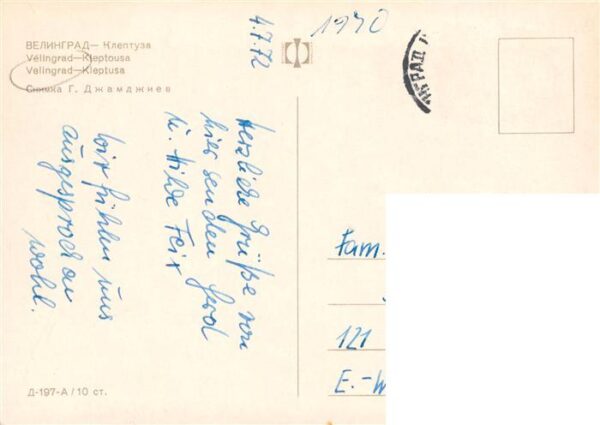 ВЕЛИНГРАД — Клептуза
Velingrad—Kleptousa
Velingrad—Kleptusa
Снимка Г. Джамджиев
4.7.72
1970
ГРАД
Herzliche Grüße von
hier senden Gerd
u. Hilde Feix
Wir fühlen uns
ausgesprochen
wohl.
Fam.
121
E.-W
Д-197-А / 10 ст.